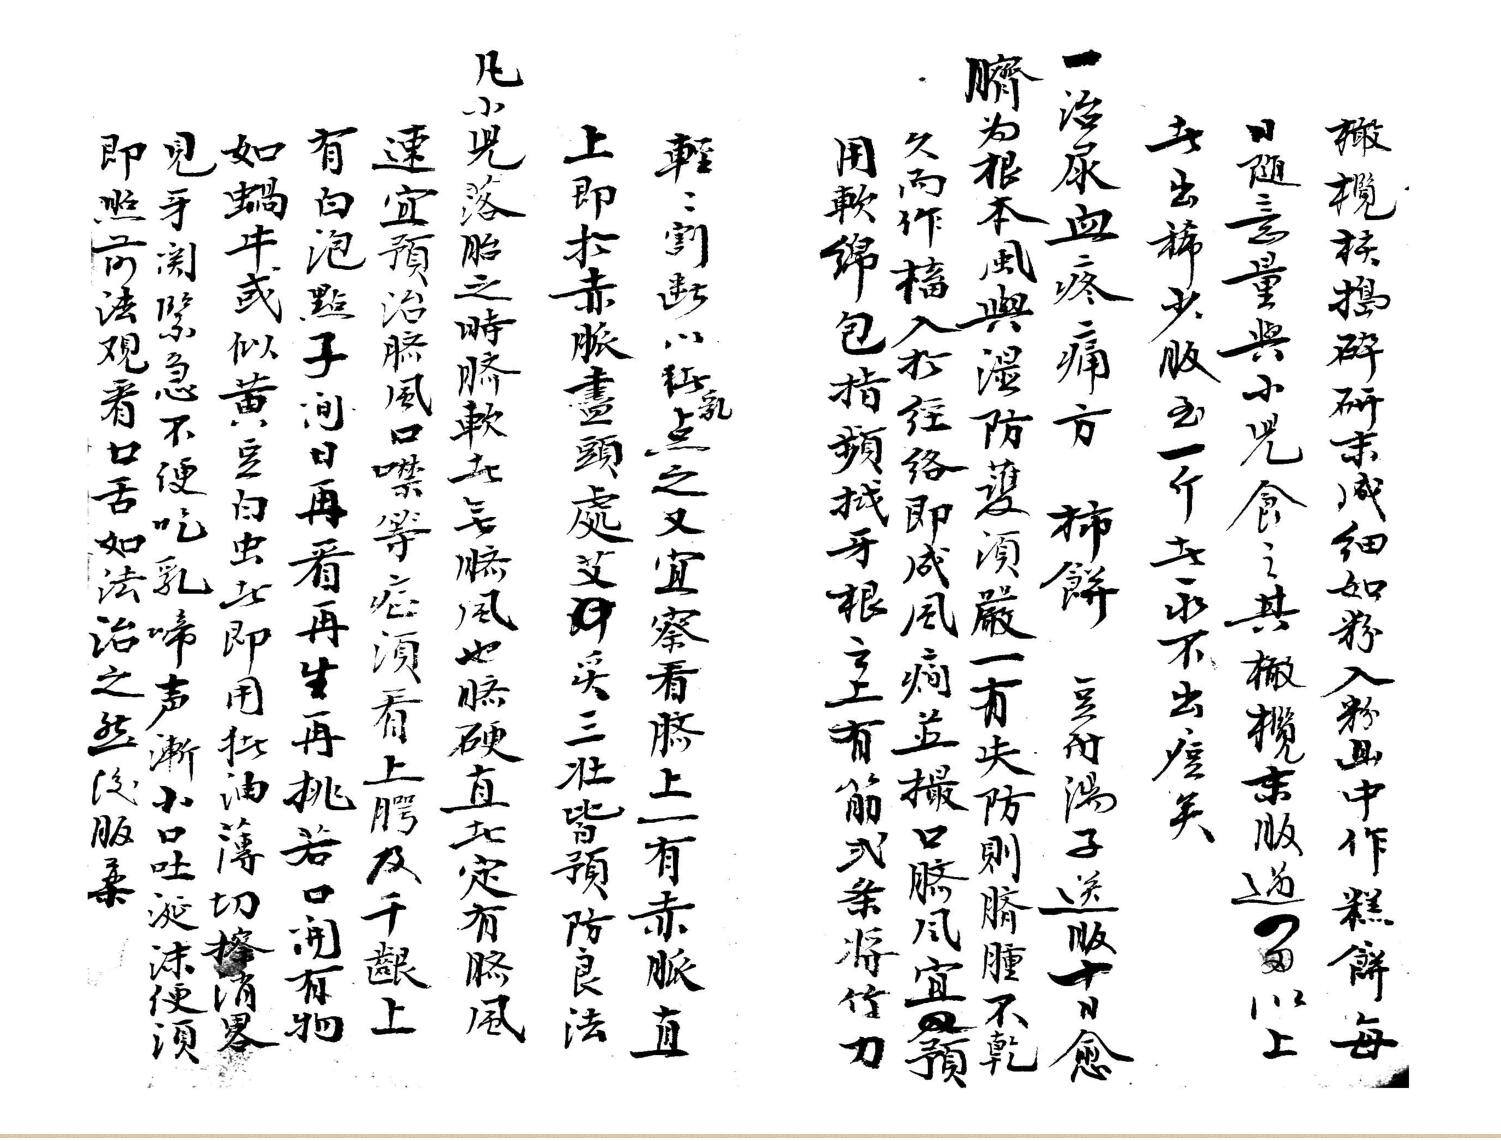 橄欖核搗碎研末咸細如粉入粉畄中作糕餅每
日随意量與小児食之其橄欖末服過以上
者出稀少服至一斤者永不出痘矣
一治尿血疼痛方　柿餅　豆腐湯子送服十日愈
臍为根本風與湿防護須嚴一有失防則臍腫不乾
久而作搐入於经络即成风痫並撮口臍风宜預
用軟綿包指頻拭牙根之上有筋弍条将竹刀
輕〻割断以猪乳点之又宜察看臍上一有赤脈直
上即於赤脈盡頭處艾炙三壮皆預防良法
凡小児落胎之時臍軟者無臍風也臍硬直者定有臍風
速宜預治臍風口噤等症須看上腭及千齦上
有白泡點子间日再看再生再挑若口開有物
如蝸牛或似黄豆白虫者即用猪油薄切擦消畧
見牙関緊急不便吃乳啼声漸小口吐涎沫便須
即照前法观看口舌如法治之然後服藥